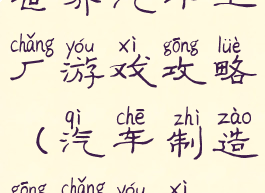 chǎng yóu xì gōng lüè
厂游戏攻略
qì chē zhì zào
(汽车制造
gōng chǎng yóu xì